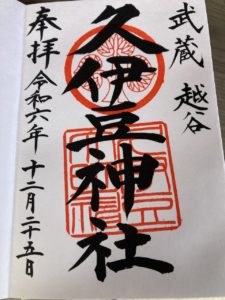 武蔵 越谷
久伊豆神社
奉拝 令和六年 十二月二十五日